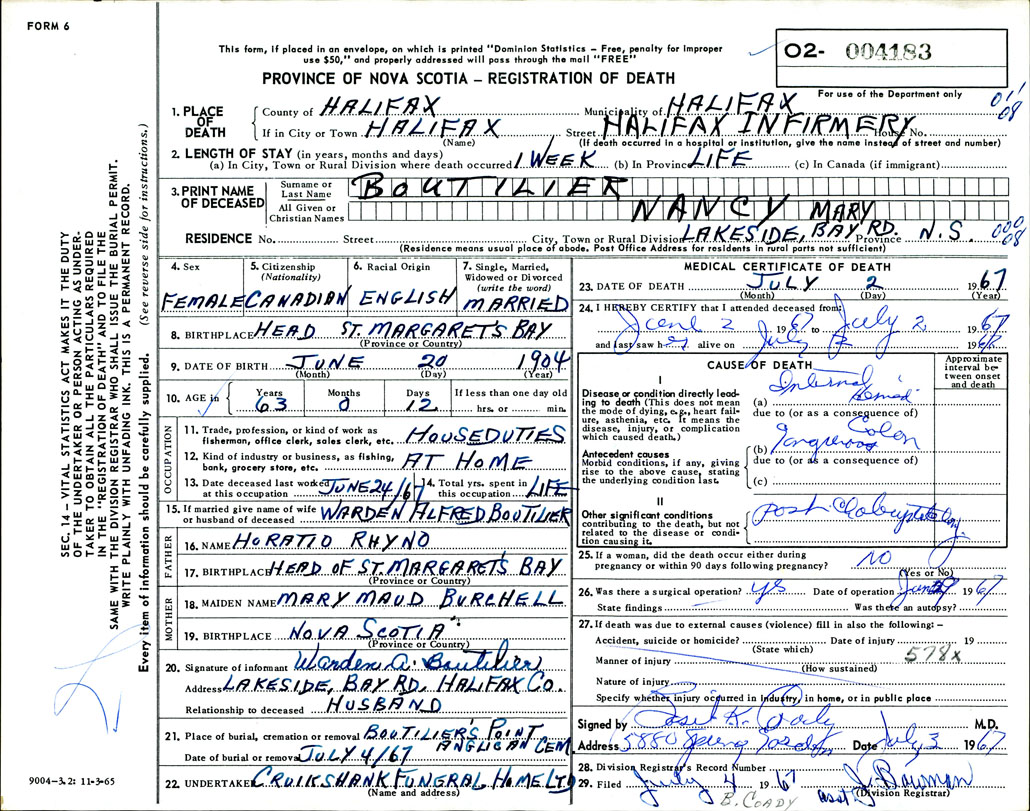 FORM 6
This form, if placed in an envelope, on which is printed "Dominion Statistics – Free, penalty for improper
use $50," and properly addressed will pass through the mail "FREE"
O2- 004183
PROVINCE OF NOVA SCOTIA – REGISTRATION OF DEATH
For use of the Department only
1. PLACE OF DEATH
County of HALIFAX Municipality of HALIFAX
If in City or Town HALIFAX Street HALIFAX INFIRMERY House No.
(Name) (If death occurred in a hospital or institution, give the name instead of street and number)
2. LENGTH OF STAY (in years, months and days)
(a) In City, Town or Rural Division where death occurred 1 WEEK (b) In Province LIFE (c) In Canada (if immigrant)
3. PRINT NAME OF DECEASED
Surname or Last Name BOUTILIER
All Given or Christian Names NANCY MARY
RESIDENCE No. Street City, Town or Rural Division LAKESIDE, BAY RD. Province N.S.
(Residence means usual place of abode. Post Office Address for residents in rural parts not sufficient)
SEC. 14 – VITAL STATISTICS ACT MAKES IT THE DUTY
OF THE UNDERTAKER OR PERSON ACTING AS UNDER-
TAKER TO OBTAIN ALL THE PARTICULARS REQUIRED
IN THE "REGISTRATION OF DEATH" AND TO FILE THE
SAME WITH THE DIVISION REGISTRAR WHO SHALL ISSUE THE BURIAL PERMIT.
WRITE PLAINLY WITH UNFADING INK. THIS IS A PERMANENT RECORD.
Every item of information should be carefully supplied. (See reverse side for instructions.)
4. Sex FEMALE
5. Citizenship (Nationality) CANADIAN
6. Racial Origin ENGLISH
7. Single, Married, Widowed or Divorced (write the word) MARRIED
8. BIRTHPLACE HEAD ST. MARGARET'S BAY
(Province or Country)
9. DATE OF BIRTH JUNE 20 1904
(Month) (Day) (Year)
10. AGE in Years 63 Months 0 Days 12 If less than one day old
hrs. or min.
OCCUPATION
11. Trade, profession, or kind of work as
fisherman, office clerk, sales clerk, etc. HOUSEDUTIES
12. Kind of industry or business, as fishing,
bank, grocery store, etc. AT HOME
13. Date deceased last worked at this occupation JUNE 24/67 14. Total yrs. spent in this occupation LIFE
15. If married give name of wife
or husband of deceased WARDEN ALFRED BOUTILIER
FATHER
16. NAME HORATIO RHYNO
17. BIRTHPLACE HEAD OF ST. MARGARET'S BAY
(Province or Country)
MOTHER
18. MAIDEN NAME MARY MAUD BURCHELL
19. BIRTHPLACE NOVA SCOTIA
(Province or Country)
20. Signature of informant Warden A. Boutilier
Address LAKESIDE, BAY RD, HALIFAX CO.
Relationship to deceased HUSBAND
21. Place of burial, cremation or removal BOUTILIER'S POINT
ANGLICAN CEM
Date of burial or removal JULY 4/67
22. UNDERTAKER CRUIKSHANK FUNERAL HOME LTD
(Name and address)
9004–3.2: 11-3-65
MEDICAL CERTIFICATE OF DEATH
23. DATE OF DEATH JULY 2 1967
(Month) (Day) (Year)
24. I HEREBY CERTIFY that I attended deceased from:
June 2 1967 to July 2 1967
and last saw her alive on July 2 196
CAUSE OF DEATH
Approximate interval between onset and death
I
Disease or condition directly lead-
ing to death (This does not mean
the mode of dying, e.g., heart fail-
ure, asthenia, etc. It means the
disease, injury, or complication
which caused death.)
(a) Internal
due to (or as a consequence of)
Antecedent causes
Morbid conditions, if any, giving
rise to the above cause, stating
the underlying condition last.
(b) Gangrenous Colon
due to (or as a consequence of)
(c)
II
Other significant conditions
contributing to the death, but not
related to the disease or condi-
tion causing it.
Post
25. If a woman, did the death occur either during
pregnancy or within 90 days following pregnancy? NO
(Yes or No)
26. Was there a surgical operation? yes Date of operation June 1967
State findings Was there an autopsy?
27. If death was due to external causes (violence) fill in also the following: –
Accident, suicide or homicide? Date of injury 19
(State which)
578x
Manner of injury
(How sustained)
Nature of injury
Specify whether injury occurred in industry, in home, or in public place
Signed by M.D.
Address 5880 Spring Garden Date July 3 1967
28. Division Registrar's Record Number
29. Filed July 4 1967 J. Bowman
(Division Registrar)
B. COADY asst